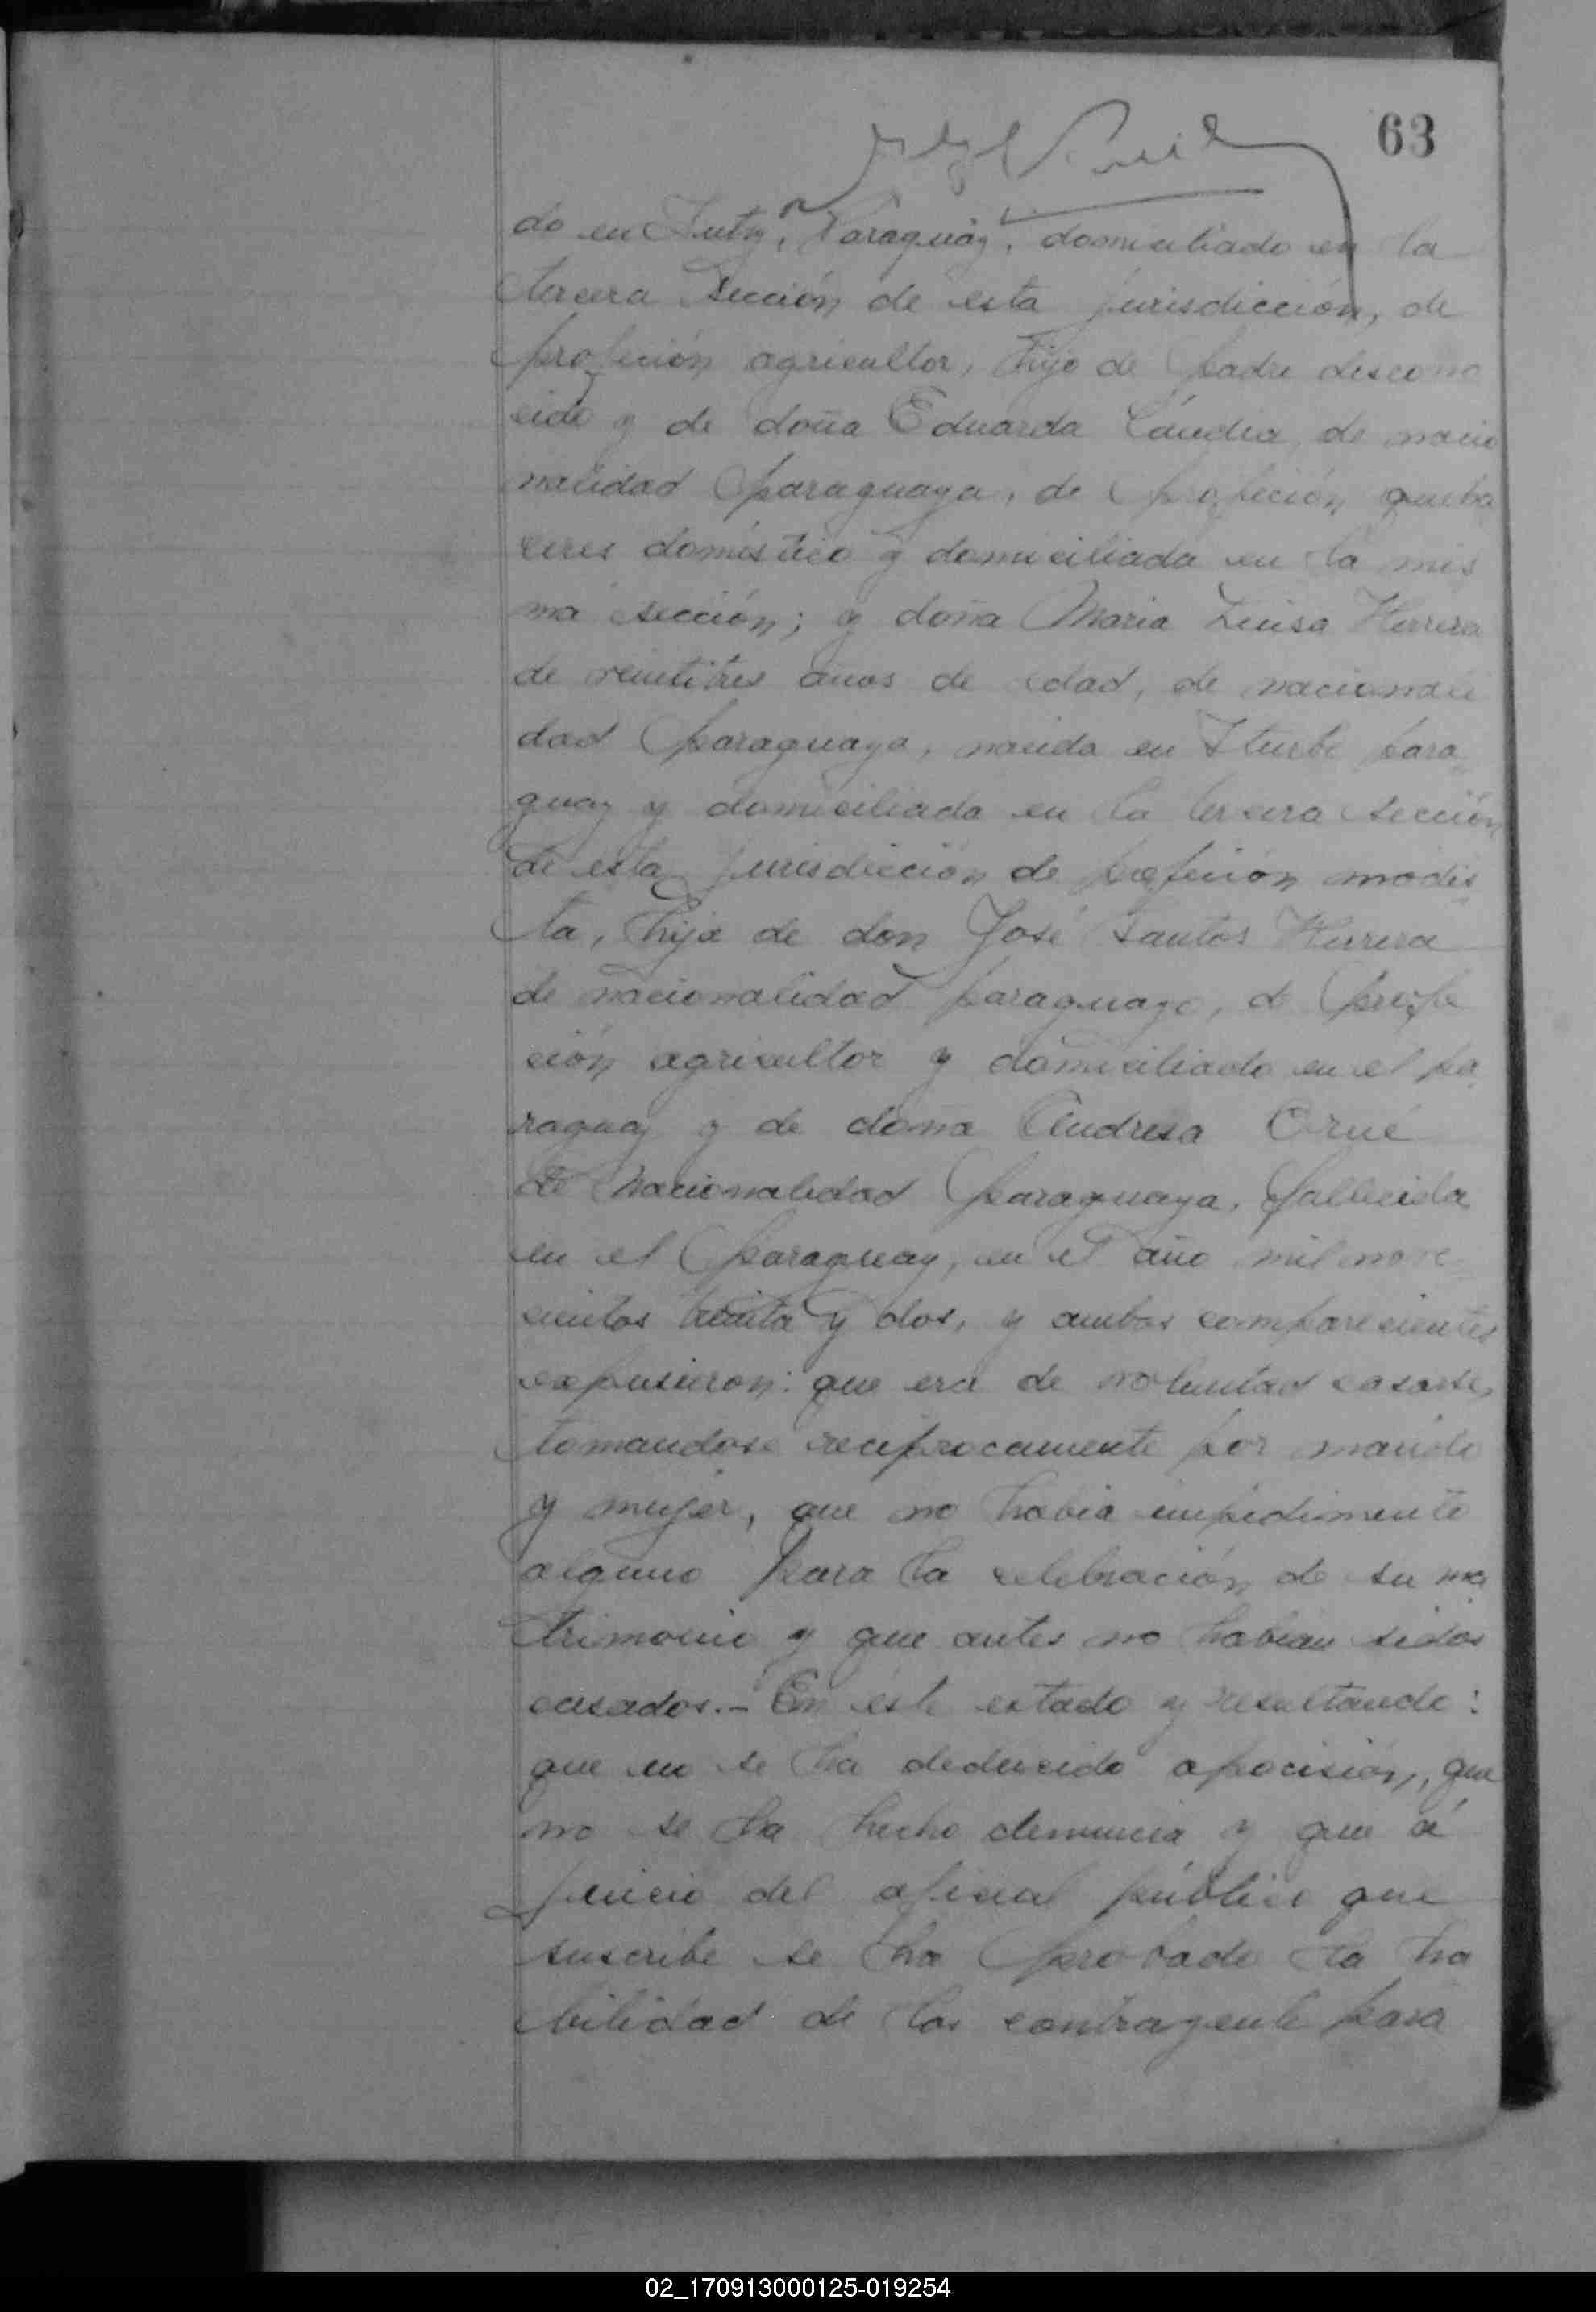 63
do en Yuty, Paraguay, domiciliado en la
tercera Sección de esta jurisdicción, de
profeción agricultor, hijo de padre descono
cido y de doña Eduarda Candia, de nacio
nalidad paraguaya, de profeción queha
ceres doméstico y domiciliada en la mis
ma sección; y doña Maria Luisa Herrera
de veintitres años de edad, de nacionali
dad paraguaya, nacida en Iturbe para
guay y domiciliada en la tercera sección
de esta jurisdicción de profeción modis
ta, hija de don José Santos Herrera
de nacionalidad paraguayo, de profe
ción agricultor y domiciliado en el pa
raguay y de doña Andresa Orué
de nacionalidad paraguaya, fallecida
en el paraguay, en el año mil nove
cientos treinta y dos, y ambos comparecientes
expusieron: que era de voluntad casarse,
tomandose reciprocamente por marido
y mujer, que no habia impedimento
alguno para la celebración de su ma
trimonio y que antes no habian sidos
casados.- En este estado y resultando:
que no se ha deducido opocisión, que
no se ha hecho denuncia y que á
juicio del oficial público que
suscribe se ha probado la ha
bilidad de los contragente para
02_170913000125-019254